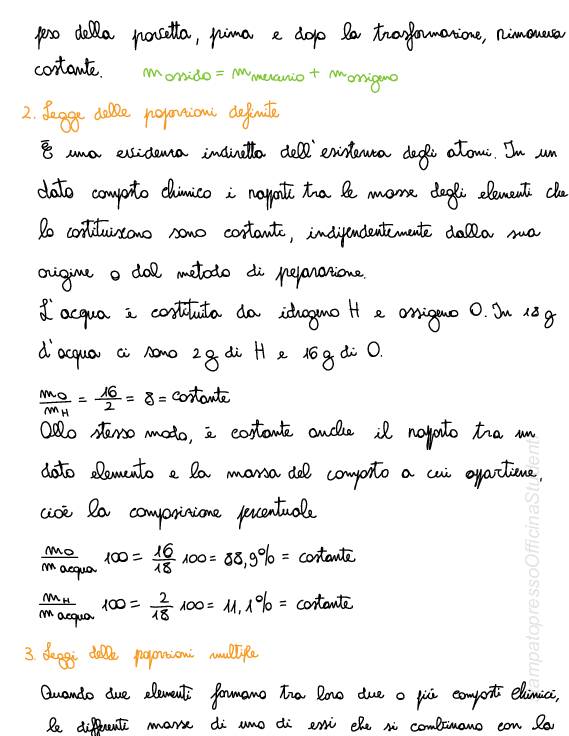 peso della porcetta, prima e dopo la trasformazione, rimaneva
costante. m ossido = m mercurio + m ossigeno
2. Legge delle poporzioni definite
È una evidenza indiretta dell'esistenza degli atomi. In un
dato composto chimico i rapporti tra le masse degli elementi che
lo costituiscono sono costanti, indipendentemente dalla sua
origine o dal metodo di peparazione.
L'acqua è costituita da idrogeno H e ossigeno O. In 18 g
d'acqua ci sono 2 g di H e 16 g di O.
mO/mH = 16/2 = 8 = costante
Allo stesso modo, è costante anche il rapporto tra un
dato elemento e la massa del composto a cui appartiene,
cioè la composizione percentuale
mO/m acqua 100 = 16/18 100 = 88,9% = costante
mH/m acqua 100 = 2/18 100 = 11,1% = costante
3. Leggi delle poporzioni multiple
Quando due elementi formano tra loro due o più composti chimici,
le differenti masse di uno di essi che si combinano con la
ampatopressoOfficinaStudenti